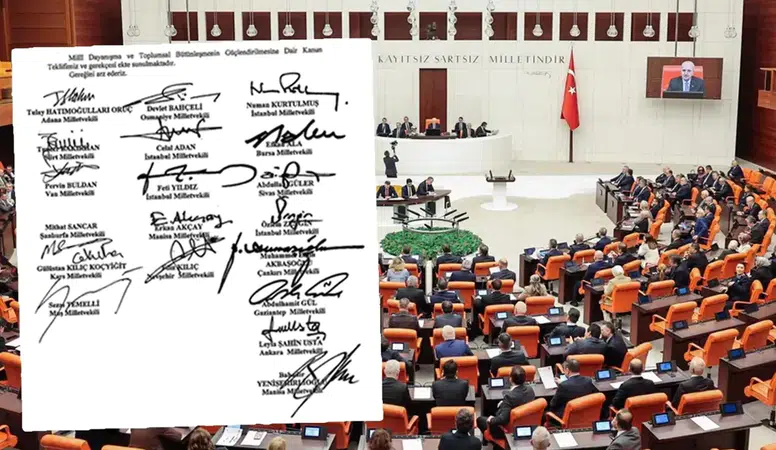 Milli Dayanışma ve Toplumsal Bütünleşmenin Güçlendirilmesine Dair Kanun
Teklifimiz ve gerekçesi ekte sunulmaktadır.
Gereğini arz ederiz.
Tülay HATIMOĞULLARI ORUÇ
Adana Milletvekili
Siirt Milletvekili
Pervin BULDAN
Van Milletvekili
Mithat SANCAR
Şanlıurfa Milletvekili
Gülüstan KILIÇ KOÇYİĞİT
Kars Milletvekili
Sezai TEMELLİ
Muş Milletvekili
Devlet BAHÇELİ
Osmaniye Milletvekili
Celal ADAN
İstanbul Milletvekili
Feti YILDIZ
İstanbul Milletvekili
Erkan AKÇAY
Manisa Milletvekili
KILIÇ
Nevşehir Milletvekili
Numan KURTULMUŞ
İstanbul Milletvekili
ALA
Bursa Milletvekili
Abdullah GÜLER
Sivas Milletvekili
Özlem ZENGİN
İstanbul Milletvekili
Muhammet
AKBAŞOĞLU
Çankırı Milletvekili
Abdulhamit GÜL
Gaziantep Milletvekili
Leyla ŞAHİN USTA
Ankara Milletvekili
YENİŞEHİRLİOĞLU
Manisa Milletvekili
KAYITSIZ ŞARTSIZ MİLLETİNDİR